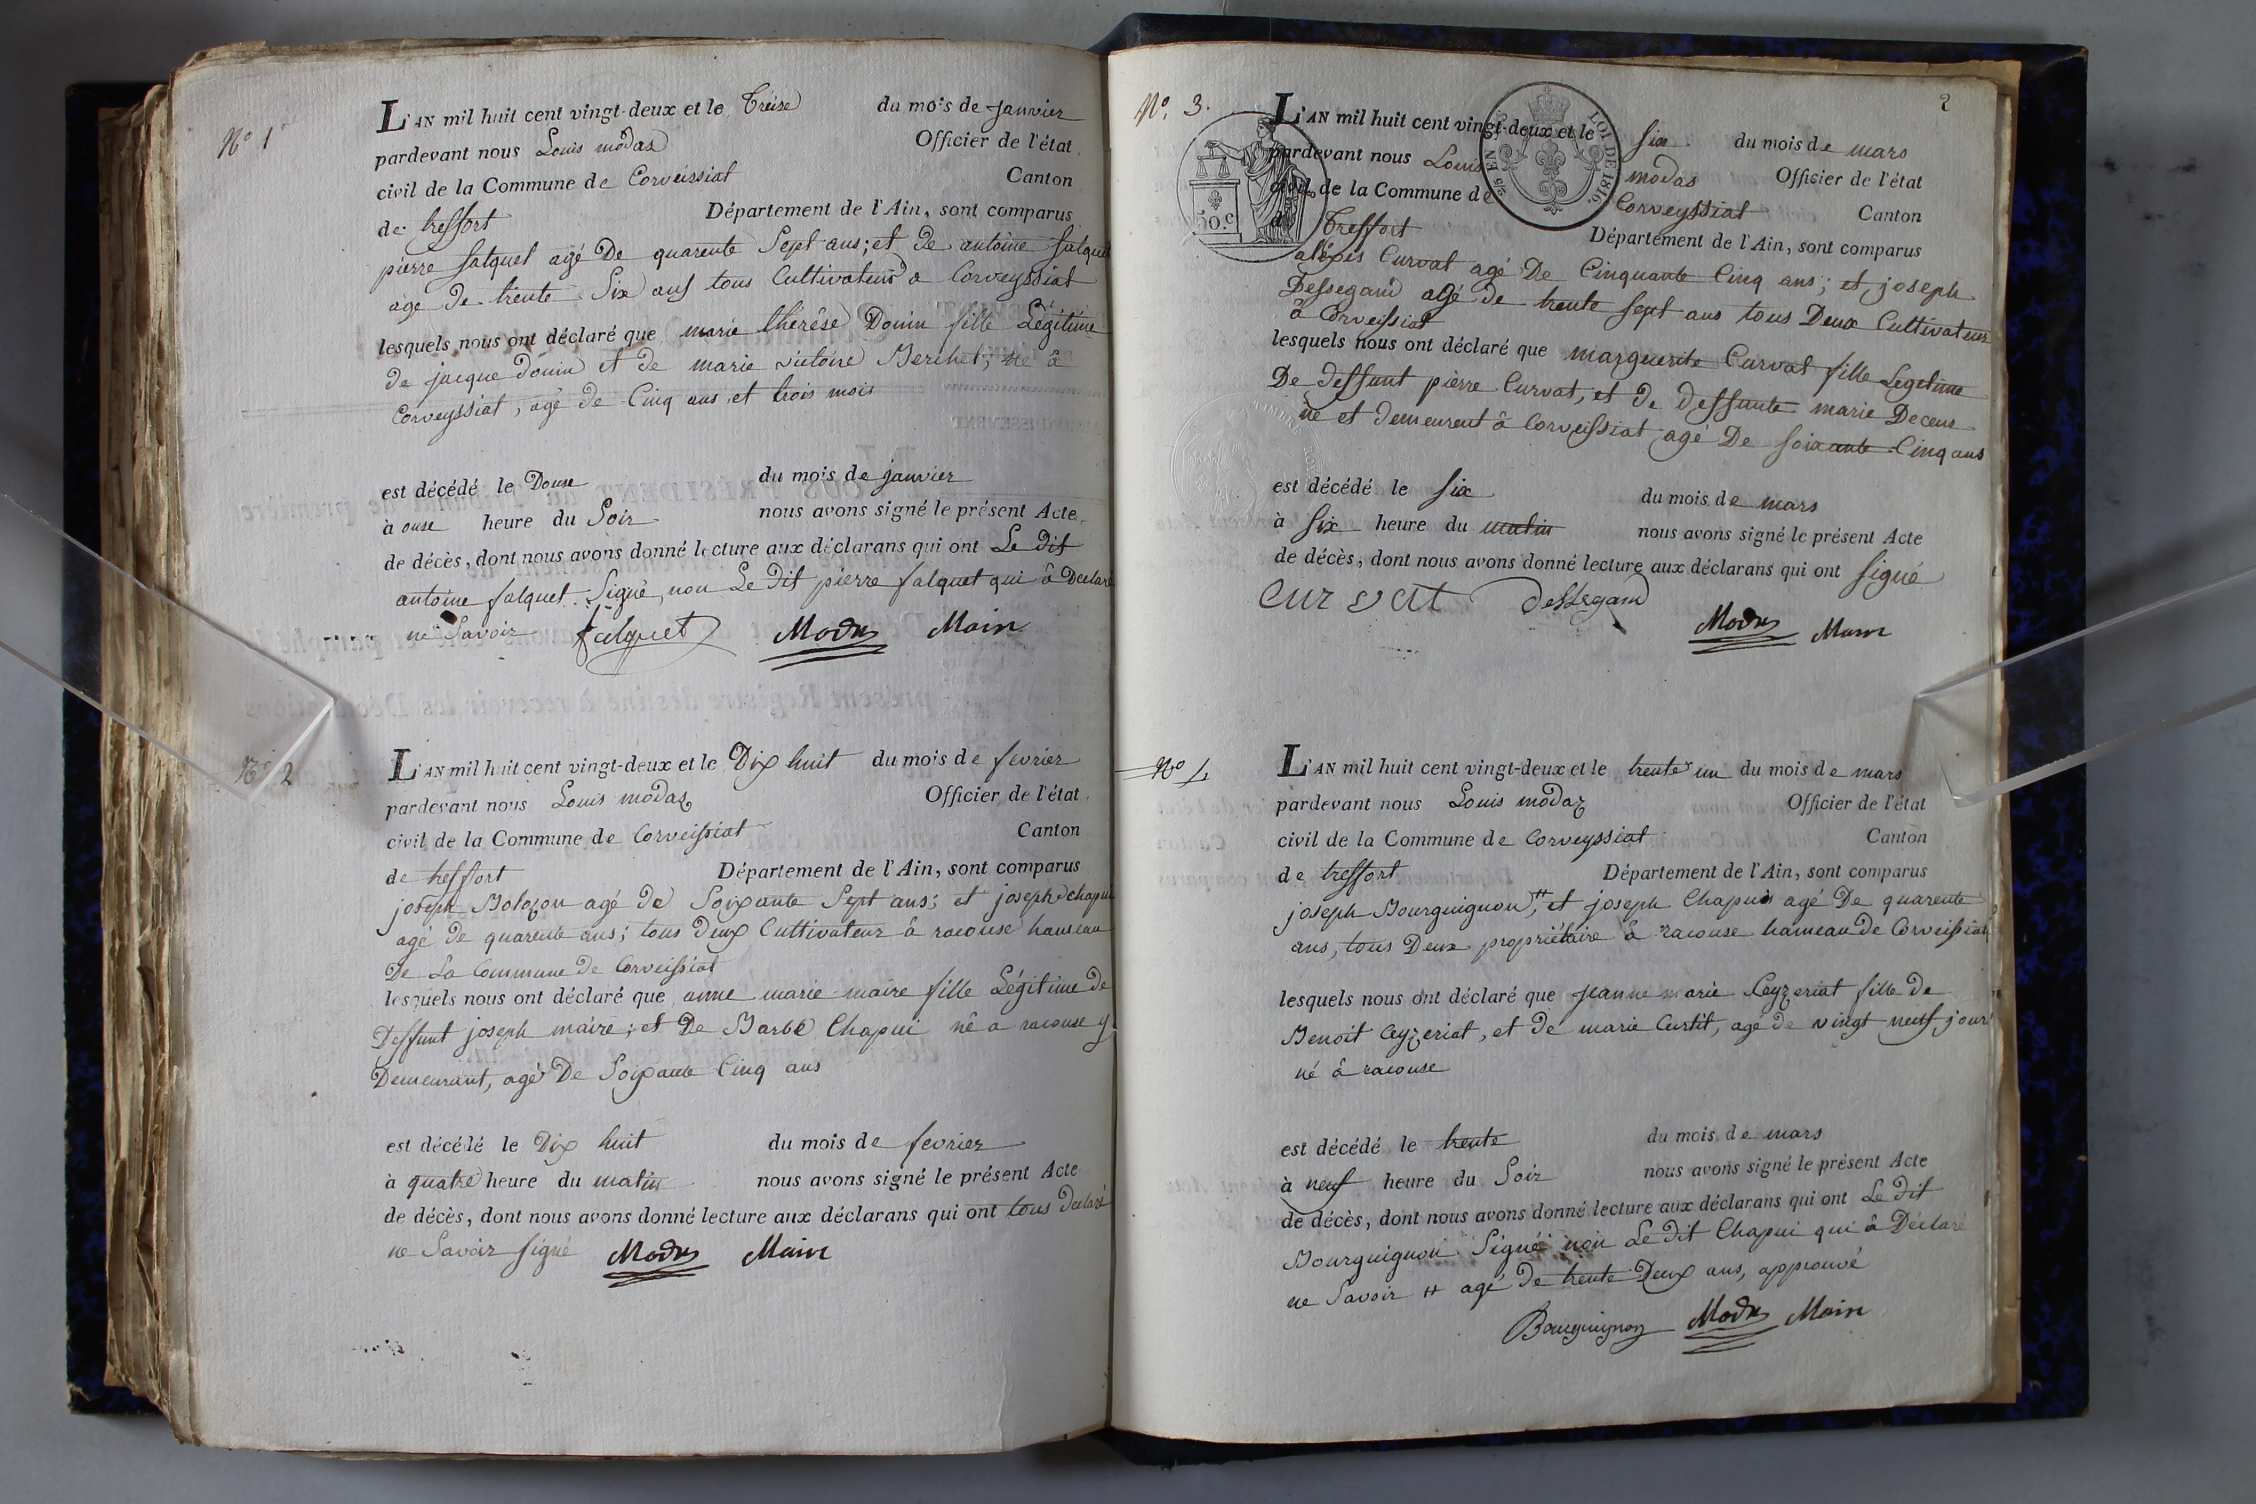 No 1er
L'AN mil huit cent vingt-deux et le Treise du mois de janvier
pardevant nous Louis modas Officier de l'état
civil de la Commune de Corveissiat Canton
de treffort Département de l'Ain, sont comparus
pierre falquet agé De quarente Sept ans; et De antoine falquet
agé De trente Six ans tous Cultivateurs a Corveyssiat
lesquels nous ont déclaré que marie thérése Donin fille Légitime
de jacque donin et de marie victoire Berchet, né â
Corveyssiat, agé de Cinq ans et trois mois
est décédé le Douse du mois de janvier
à onse heure du Soir nous avons signé le présent Acte
de décès, dont nous avons donné lecture aux déclarans qui ont Le Dit
antoine falquet Signé, non Le Dit pierre falquet qui â Declaré
ne Savoir falquet Modas Main
No 2
L'AN mil huit cent vingt-deux et le Dix huit du mois de fevrier
pardevant nous Louis modaz Officier de l'état
civil de la Commune de Corveissiat Canton
de treffort Département de l'Ain, sont comparus
joseph Bolozon agé de Soixante Sept ans; et joseph chapui
agé de quarente ans; tous deux Cultivateur â racouse hameau
De La Commune De Corveissiat
lesquels nous ont déclaré que anne marie maire fille Légitime de
Deffunt joseph maire; et De Barbe Chapui né a racouse y
Demeurant, agé De Soixante Cinq ans
est décédé le Dix huit du mois de fevrier
à quatre heure du matin nous avons signé le présent Acte
de décès, dont nous avons donné lecture aux déclarans qui ont tous declaré
ne Savoir signé Modas Main
2
No. 3.
L'AN mil huit cent vingt-deux et le six du mois de mars
pardevant nous Louis modas Officier de l'état
civil de la Commune de Corveyssiat Canton
de Treffort Département de l'Ain, sont comparus
LOI DE 1816.
50.c
alexis Curvat agé De Cinquante Cinq ans; et joseph
Dessegand agé de trente sept ans tous Deux Cultivateur
â Corveissiat
lesquels nous ont déclaré que marguerite Curvat fille Legitime
De deffunt pierre Curvat, et De deffunte marie Decene
né et demeurent â Corveissiat agé De soixante Cinq ans
est décédé le six du mois de mars
à six heure du matin nous avons signé le présent Acte
de décès, dont nous avons donné lecture aux déclarans qui ont signé
curvat dessegand
Modas Main
No 4
L'AN mil huit cent vingt-deux et le trente un du mois de mars
pardevant nous Louis modaz Officier de l'état
civil de la Commune de Corveyssiat Canton
de treffort Département de l'Ain, sont comparus
joseph Bourguignon #, et joseph Chapuis agé De quarente
ans, tous Deux propriétaire â racouse hameau de Corveissiat
lesquels nous ont déclaré que jeanne marie Ceyzeriat fille de
Benoit Ceyzeriat, et de marie Curtit, agé de vingt neuf jours
né â racouse
est décédé le trente du mois de mars
à neuf heure du Soir nous avons signé le présent Acte
de décès, dont nous avons donné lecture aux déclarans qui ont Le Dit
Bourguignon Signé non Le Dit Chapui qui â Déclaré
ne Savoir # agé De trente Deux ans, approuvé
Bourguignon Modas Main